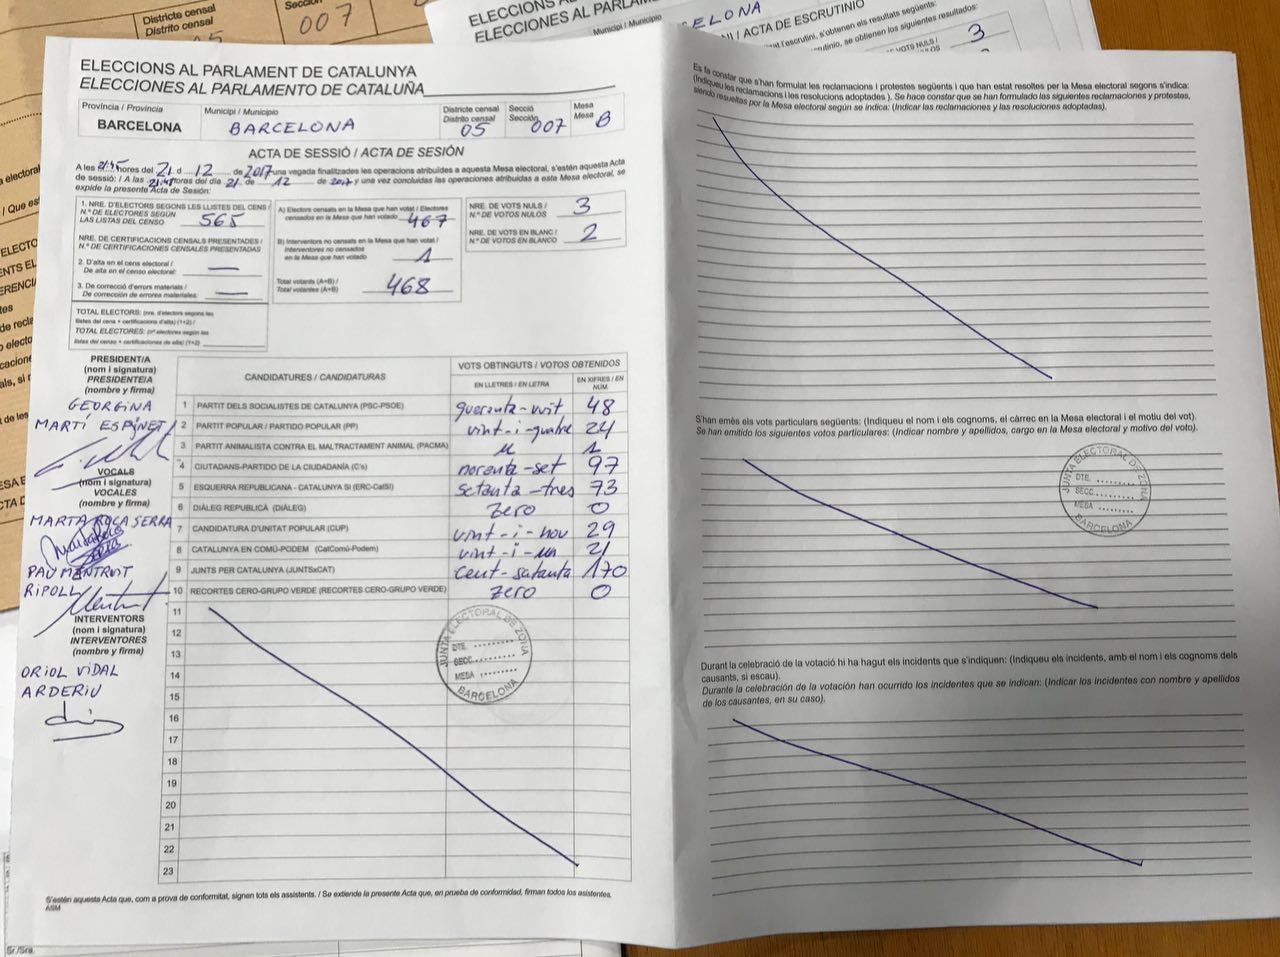 Districte censal
Distrito censal
05
Secció
007
ELECCIONS AL
ELECCIONES AL PARLAM
Municipi / Municipio
ELONA
NI / ACTA DE ESCRUTINIO
t l'escrutini, s'obtenen els resultats següents:
utinio, se obtienen los siguientes resultados:
VOTS NULS /
3
ELECCIONS AL PARLAMENT DE CATALUNYA
ELECCIONES AL PARLAMENTO DE CATALUÑA
Província / Provincia
BARCELONA
Municipi / Municipio
BARCELONA
Districte censal
Distrito censal
05
Secció
Sección
007
Mesa
Mesa
B
ACTA DE SESSIÓ / ACTA DE SESIÓN
A les 21:45 hores del 21 d 12 de 2017 una vegada finalitzades les operacions atribuïdes a aquesta Mesa electoral, s'estén aquesta Acta
de sessió: / A las 21:45 horas del día 21 de 12 de 2017 y una vez concluidas las operaciones atribuidas a esta Mesa electoral, se
expide la presente Acta de Sesión:
1. NRE. D'ELECTORS SEGONS LES LLISTES DEL CENS /
N.º DE ELECTORES SEGÚN
LAS LISTAS DEL CENSO
565
NRE. DE CERTIFICACIONS CENSALS PRESENTADES /
N.º DE CERTIFICACIONES CENSALES PRESENTADAS
2. D'alta en el cens electoral /
De alta en el censo electoral:
—
3. De correcció d'errors materials /
De corrección de errores materiales:
—
TOTAL ELECTORS: (nre. d'electors segons les
llistes del cens + certificacions d'alta) (1+2) /
TOTAL ELECTORES: (nº electores según las
listas del censo + certificaciones de alta) (1+2)
A) Electors censats en la Mesa que han votat / Electores
censados en la Mesa que han votado
467
B) Interventors no censats en la Mesa que han votat /
Interventores no censados
en la Mesa que han votado
1
Total votants (A+B) /
Total votantes (A+B)
468
NRE. DE VOTS NULS /
N.º DE VOTOS NULOS
3
NRE. DE VOTS EN BLANC /
N.º DE VOTOS EN BLANCO
2
PRESIDENT/A
(nom i signatura)
PRESIDENTE/A
(nombre y firma)
GEORGINA
MARTÍ ESPINET
VOCALS
(nom i signatura)
VOCALES
(nombre y firma)
MARTA ROCA SERRA
PAU MENTRUIT
RIPOLL
INTERVENTORS
(nom i signatura)
INTERVENTORES
(nombre y firma)
ORIOL VIDAL
ARDERIU
CANDIDATURES / CANDIDATURAS
VOTS OBTINGUTS / VOTOS OBTENIDOS
EN LLETRES / EN LETRA
EN XIFRES / EN NÚM.
1 PARTIT DELS SOCIALISTES DE CATALUNYA (PSC-PSOE) quaranta-vuit 48
2 PARTIT POPULAR / PARTIDO POPULAR (PP) vint-i-quatre 24
3 PARTIT ANIMALISTA CONTRA EL MALTRACTAMENT ANIMAL (PACMA) u 1
4 CIUTADANS-PARTIDO DE LA CIUDADANÍA (C's) noranta-set 97
5 ESQUERRA REPUBLICANA - CATALUNYA SÍ (ERC-CatSí) setanta-tres 73
6 DIÀLEG REPUBLICÀ (DIÀLEG) zero 0
7 CANDIDATURA D'UNITAT POPULAR (CUP) vint-i-nou 29
8 CATALUNYA EN COMÚ-PODEM (CatComú-Podem) vint-i-un 21
9 JUNTS PER CATALUNYA (JUNTSxCAT) cent-satanta 170
10 RECORTES CERO-GRUPO VERDE (RECORTES CERO-GRUPO VERDE) zero 0
11
12
13
14
15
16
17
18
19
20
21
22
23
JUNTA ELECTORAL DE ZONA
DTE. ..........
SECC. ..........
MESA ..........
BARCELONA
S'estén aquesta Acta que, com a prova de conformitat, signen tots els assistents. / Se extiende la presente Acta que, en prueba de conformidad, firman todos los asistentes.
ASM
Es fa constar que s'han formulat les reclamacions i protestes següents i que han estat resoltes per la Mesa electoral segons s'indica:
(Indiqueu les reclamacions i les resolucions adoptades ). Se hace constar que se han formulado las siguientes reclamaciones y protestas,
siendo resueltas por la Mesa electoral según se indica: (Indicar las reclamaciones y las resoluciones adoptadas).
S'han emès els vots particulars següents: (Indiqueu el nom i els cognoms, el càrrec en la Mesa electoral i el motiu del vot).
Se han emitido los siguientes votos particulares: (Indicar nombre y apellidos, cargo en la Mesa electoral y motivo del voto).
JUNTA ELECTORAL DE ZONA
DTE. ..........
SECC. ..........
MESA ..........
BARCELONA
Durant la celebració de la votació hi ha hagut els incidents que s'indiquen: (Indiqueu els incidents, amb el nom i els cognoms dels
causants, si escau).
Durante la celebración de la votación han ocurrido los incidentes que se indican: (Indicar los incidentes con nombre y apellidos
de los causantes, en su caso).
Sr./Sra.